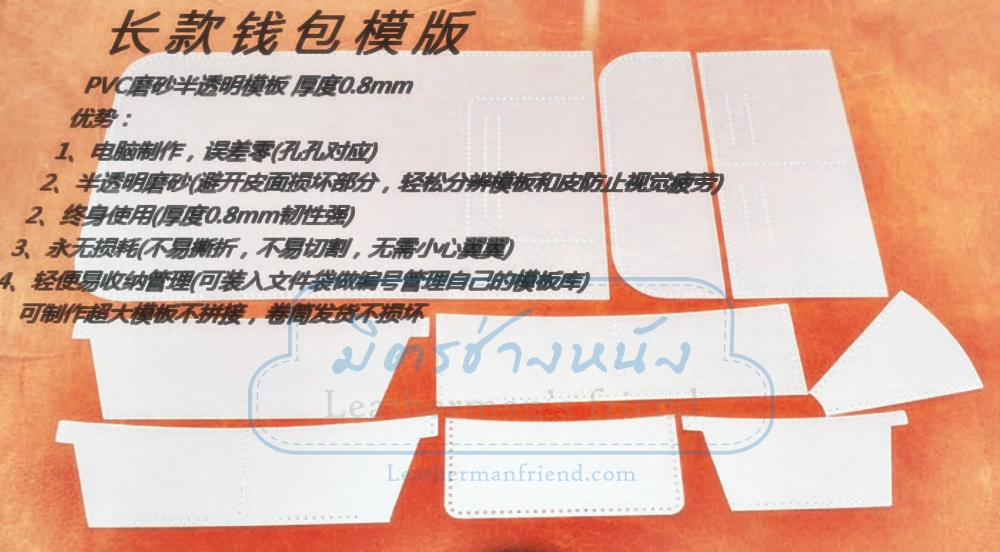 长款钱包模版
PVC磨砂半透明模板 厚度0.8mm
优势：
1、电脑制作，误差零(孔孔对应)
2、半透明磨砂(避开皮面损坏部分，轻松分辨模板和皮防止视觉疲劳)
2、终身使用(厚度0.8mm韧性强)
3、永无损耗(不易撕折，不易切割，无需小心翼翼)
4、轻便易收纳管理(可装入文件袋做编号管理自己的模板库)
可制作超大模板不拼接，卷筒发货不损坏
มิตรช่างหนัง
Leatherman's friend
Leathermanfriend.com